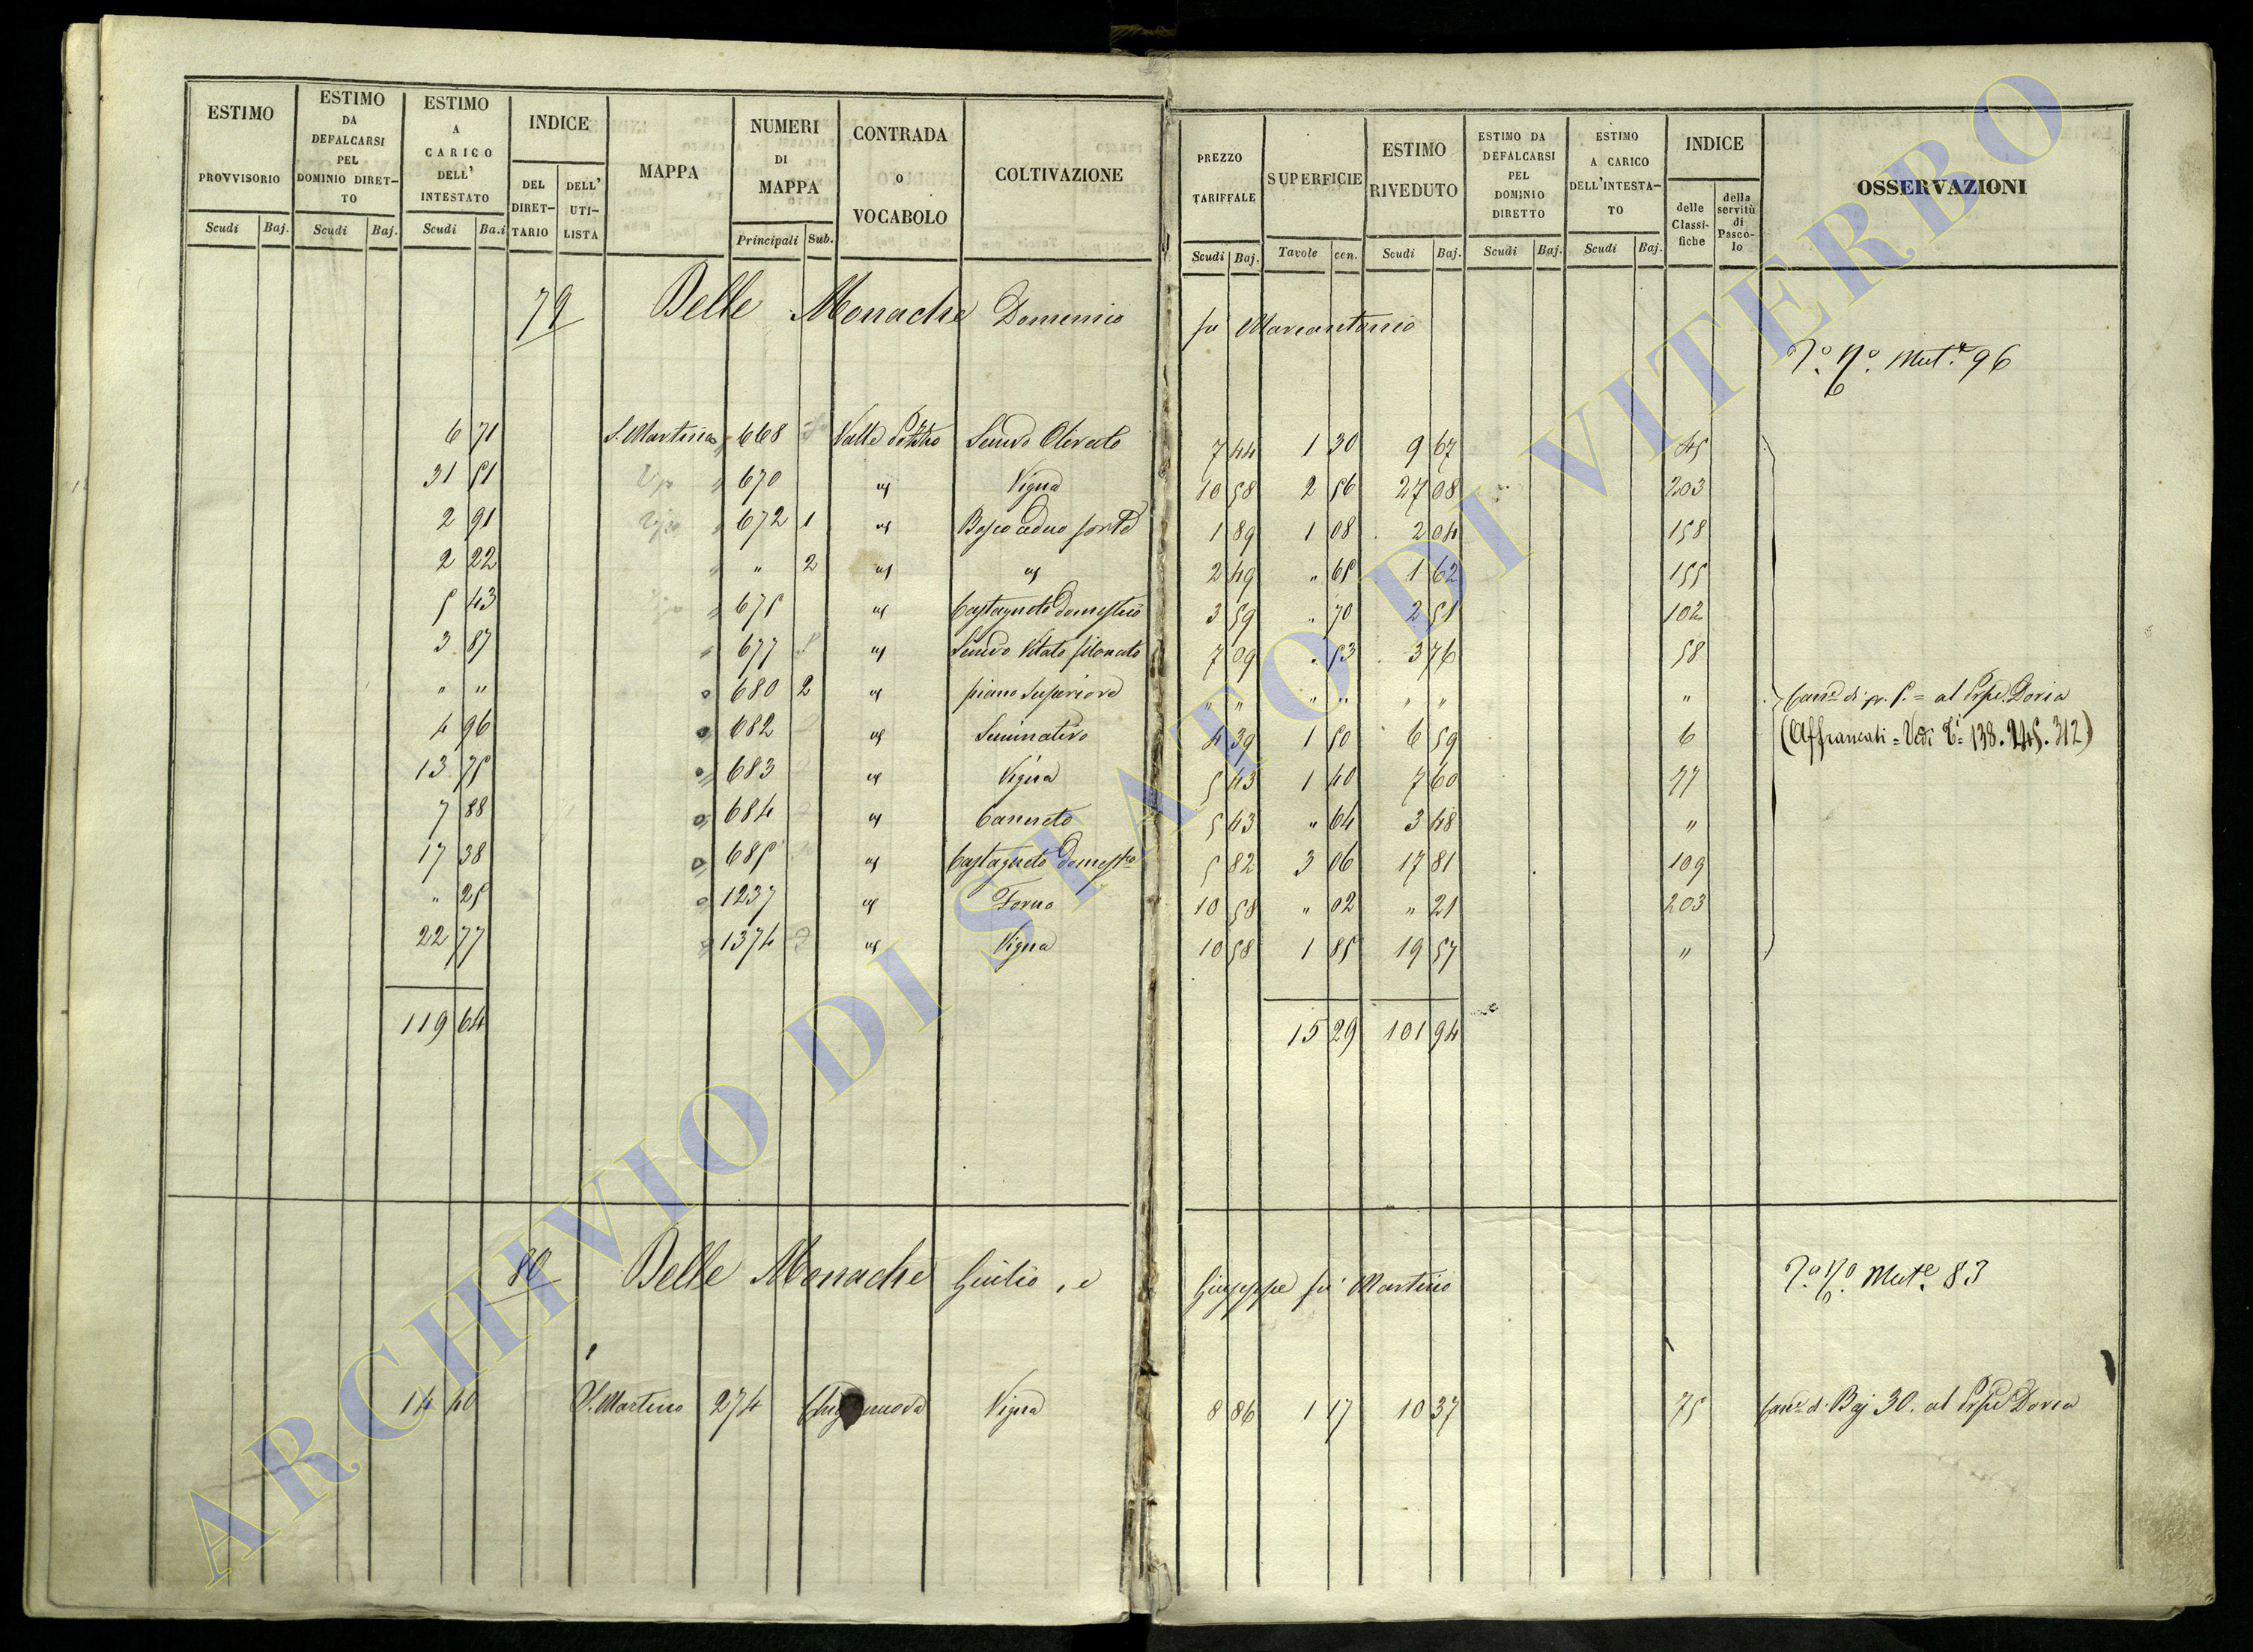 ESTIMO PROVVISORIO Scudi Baj.
ESTIMO DA DEFALCARSI PEL DOMINIO DIRET-TO Scudi Baj.
ESTIMO A CARICO DELL' INTESTATO Scudi Ba.i
INDICE DEL DIRET-TARIO DELL' UTI-LISTA
MAPPA
NUMERI DI MAPPA Principali Sub.
CONTRADA O VOCABOLO
COLTIVAZIONE
PREZZO TARIFFALE Scudi Baj.
SUPERFICIE Tavole cen.
ESTIMO RIVEDUTO Scudi Baj.
ESTIMO DA DEFALCARSI PEL DOMINIO DIRETTO Scudi Baj.
ESTIMO A CARICO DELL'INTESTA-TO Scudi Baj.
INDICE delle Classi-fiche della servitù di Pasco-lo
OSSERVAZIONI
79 Delle Monache Domenico fu Marcantonio
Mut.e 96
6 71 S. Martino 668 Valle Semvo Olivato 7 44 1 30 9 67 45
31 51 670 " Vigna 10 58 2 56 27 08 203
2 91 672 1 " Bosco ceduo forte 1 89 1 08 2 04 158
2 22 " 2 " " 2 49 " 65 1 62 155
5 43 675 " Castagneto Domestico 3 59 " 70 2 51 102
3 87 677 " Semvo Vitato filonato 7 09 " 53 3 76 58
" " 680 2 " piano Superiore " " " " " " " Can.e di al Prpe. Doria
4 96 682 " Seminativo 4 39 1 50 6 59 6 (Affrancati = Vedi 138. 245. 312)
13 75 683 " Vigna 5 43 1 40 7 60 77
7 88 684 " Canneto 5 43 " 64 3 48 "
17 38 685 " Castagneto Domestco 5 82 3 06 17 81 109
" 25 1237 " Forno 10 58 " 02 " 21 203
22 77 1374 " Vigna 10 58 1 85 19 57 "
119 64 15 29 101 94
80 Delle Monache Giulio, e Giuseppe fu Martino
Mut.e 83
14 40 S. Martino 274 Vigna 8 86 1 17 10 37 75 Can.e di Baj 30. al Prpe Doria
ARCHIVIO DI STATO DI VITERBO